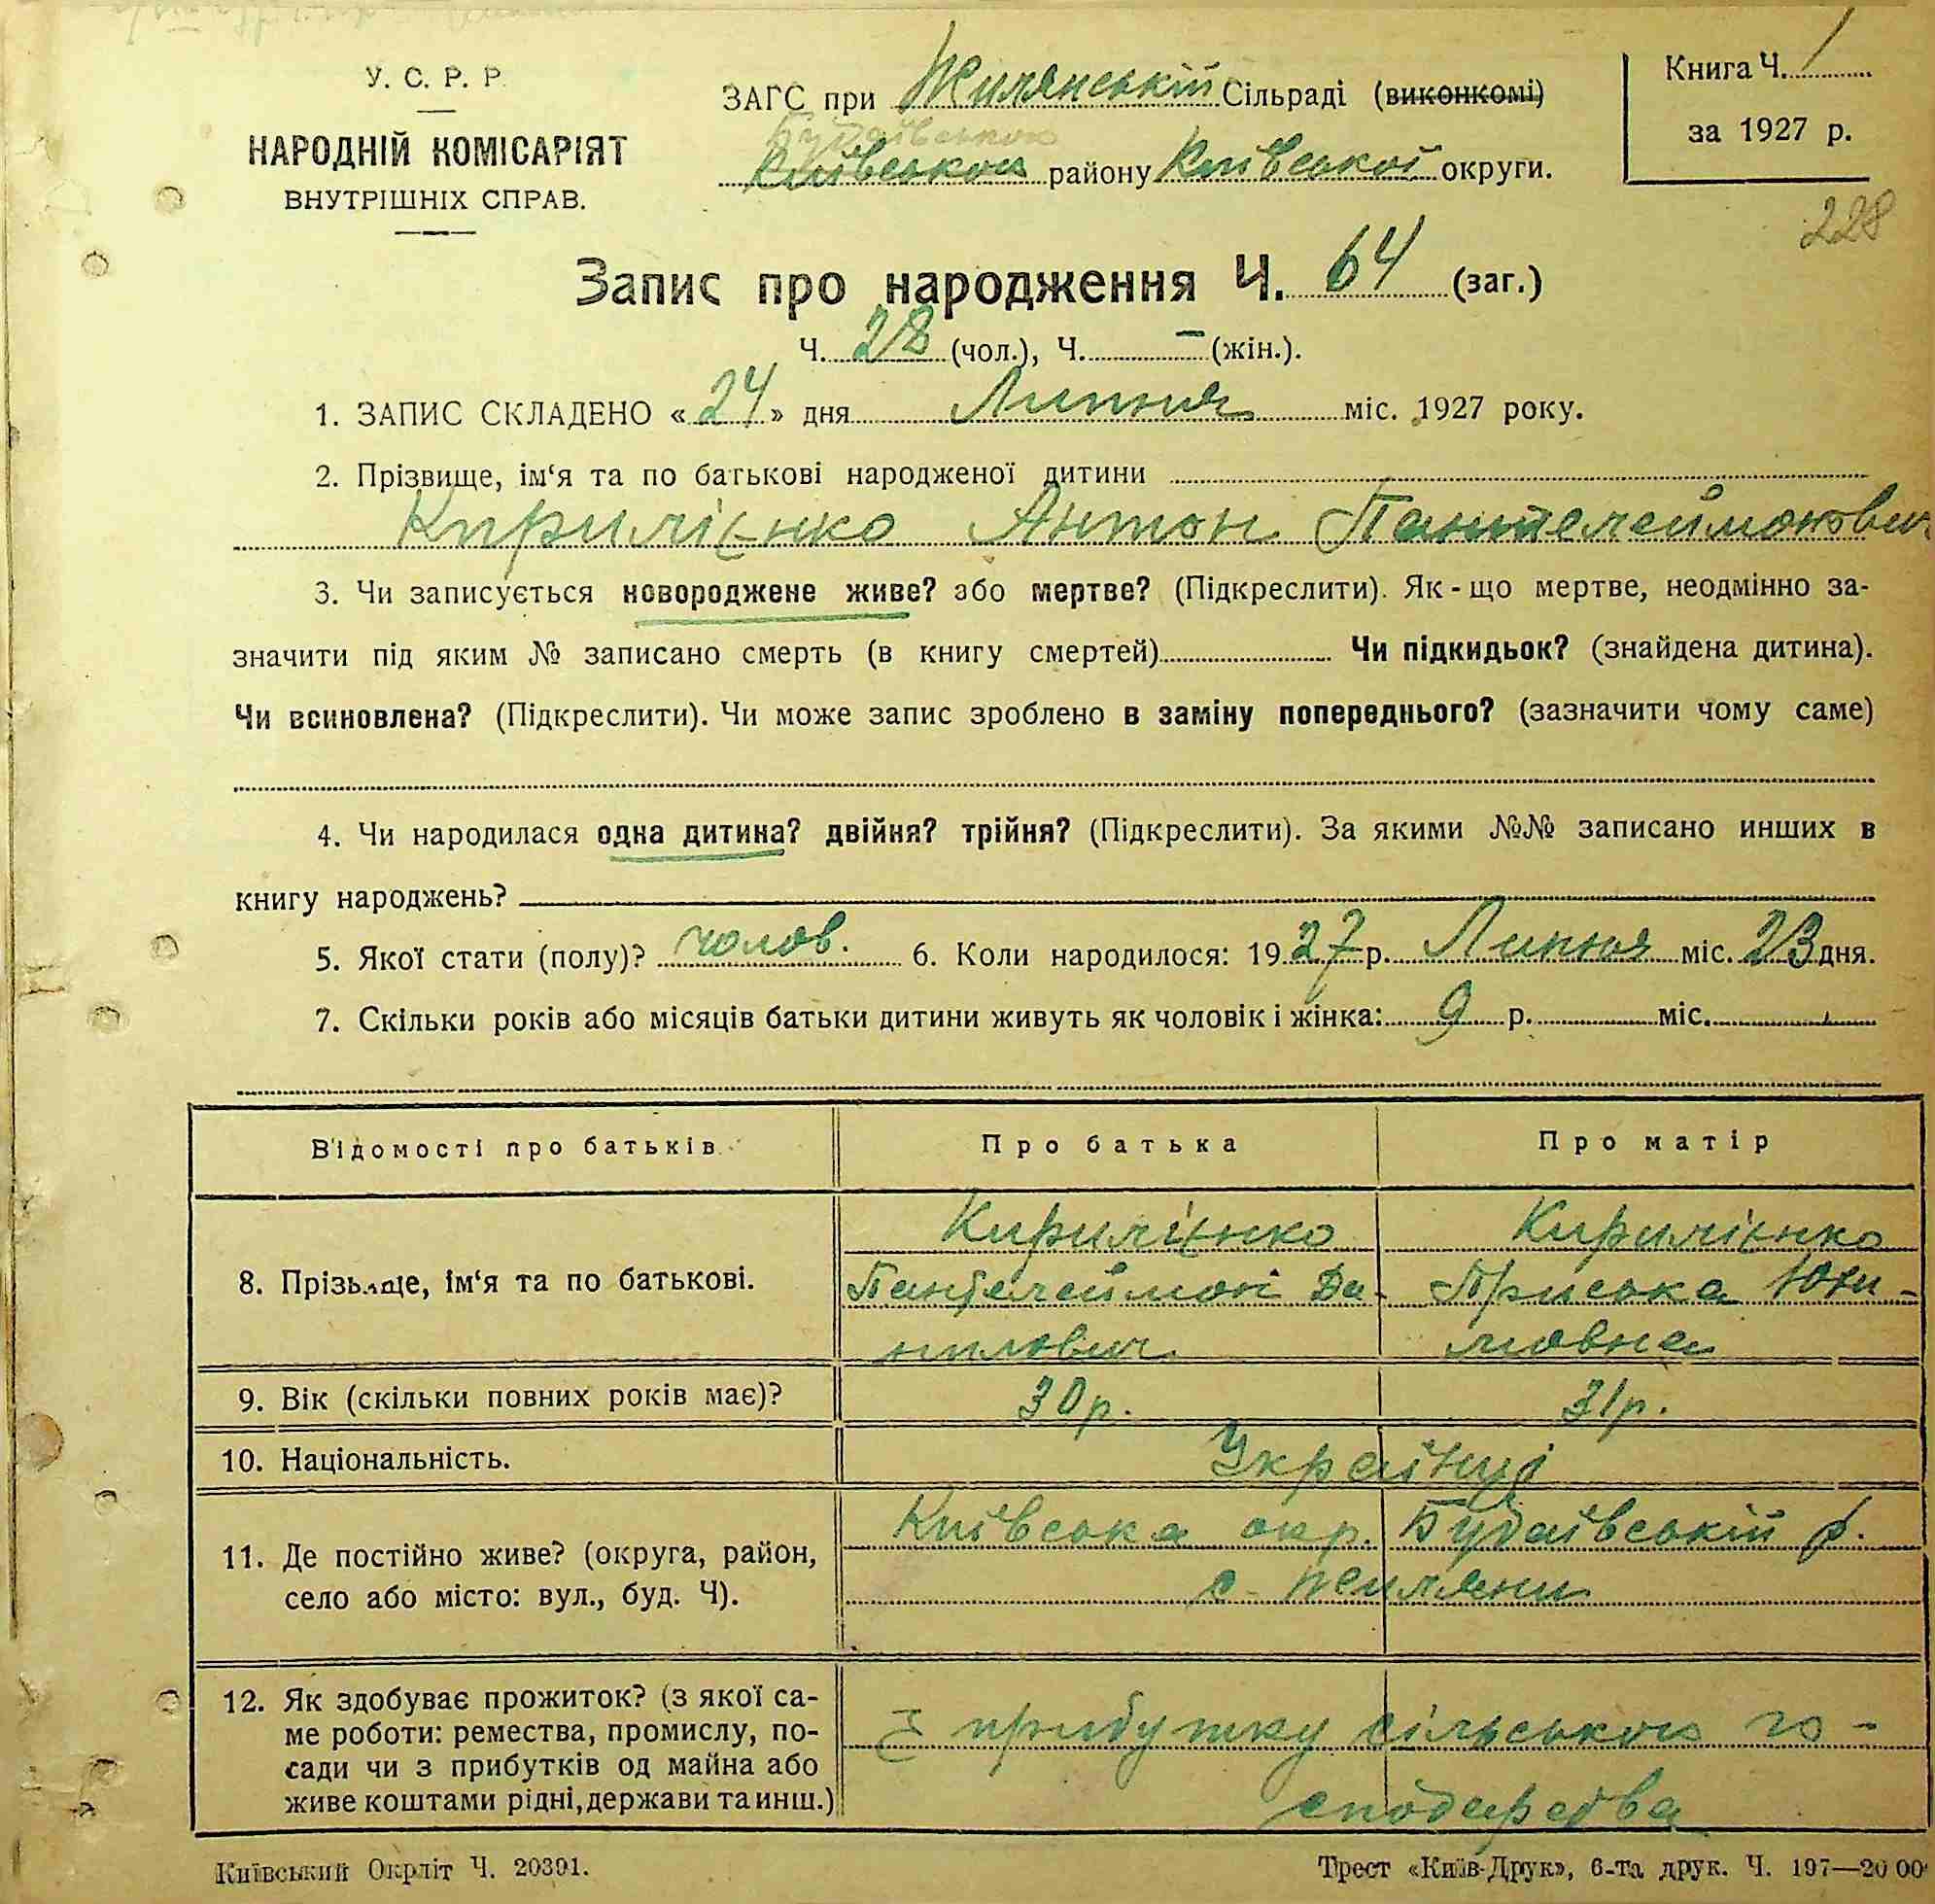 У. С. Р. Р.
НАРОДНІЙ КОМІСАРІЯТ
ВНУТРІШНІХ СПРАВ.
ЗАГС при Жилянській Сільраді (виконкомі)
Будаївського
Київського району Київської округи.
Книга Ч. 1
за 1927 р.
228
Запис про народження Ч. 64 (заг.)
Ч. 28 (чол.), Ч. – (жін.).
1. ЗАПИС СКЛАДЕНО «24» дня Липня міс. 1927 року.
2. Прізвище, ім‘я та по батькові народженої дитини
Кирилієнко Антон Пантелеймонович
3. Чи записується новороджене живе? або мертве? (Підкреслити). Як-що мертве, неодмінно за-
значити під яким № записано смерть (в книгу смертей) Чи підкидьок? (знайдена дитина).
Чи всиновлена? (Підкреслити). Чи може запис зроблено в заміну попереднього? (зазначити чому саме)
4. Чи народилася одна дитина? двійня? трійня? (Підкреслити). За якими №№ записано инших в
книгу народжень?
5. Якої стати (полу)? чолов. 6. Коли народилося: 1927 р. Липня міс. 23 дня.
7. Скільки років або місяців батьки дитини живуть як чоловік і жінка: 9 р. міс.
Відомості про батьків Про батька Про матір
8. Прізвище, ім‘я та по батькові.
Кирилієнко
Пантелеймон Да-
нилович
Кирилієнко
Приська Юхи-
мовна
9. Вік (скільки повних років має)? 30 р. 31 р.
10. Національність. Українці
11. Де постійно живе? (округа, район,
село або місто: вул., буд. Ч).
Київська окр. Будаївський р.
с. Жиляни
12. Як здобуває прожиток? (з якої са-
ме роботи: ремества, промислу, по-
сади чи з прибутків од майна або
живе коштами рідні, держави та инш.)
З прибутку сільського го-
сподарства
Київський Окрліт Ч. 20391.
Трест «Київ-Друк», 6-та друк. Ч. 197—20 00